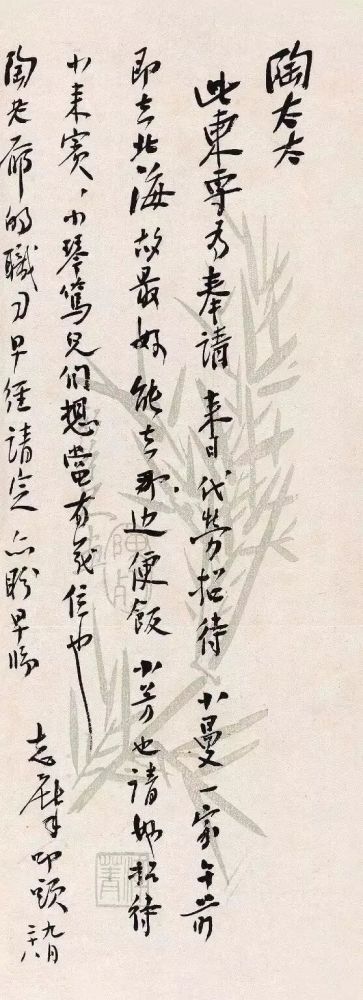 陶太太
此柬专为奉请 来日代劳招待 小曼一家午前
即去北海故最好能去那边便饭 小芳也请妳招待
小来宾、小琴笃兄们想当有戎信也
陶老爷的职司早经请定亦盼早临
志摩叩头 九月二十八